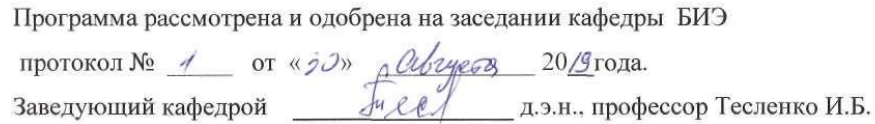 Программа рассмотрена и одобрена на заседании кафедры БИЭ
протокол № 1 от «30» Августа 2019 года.
Заведующий кафедрой д.э.н., профессор Тесленко И.Б.